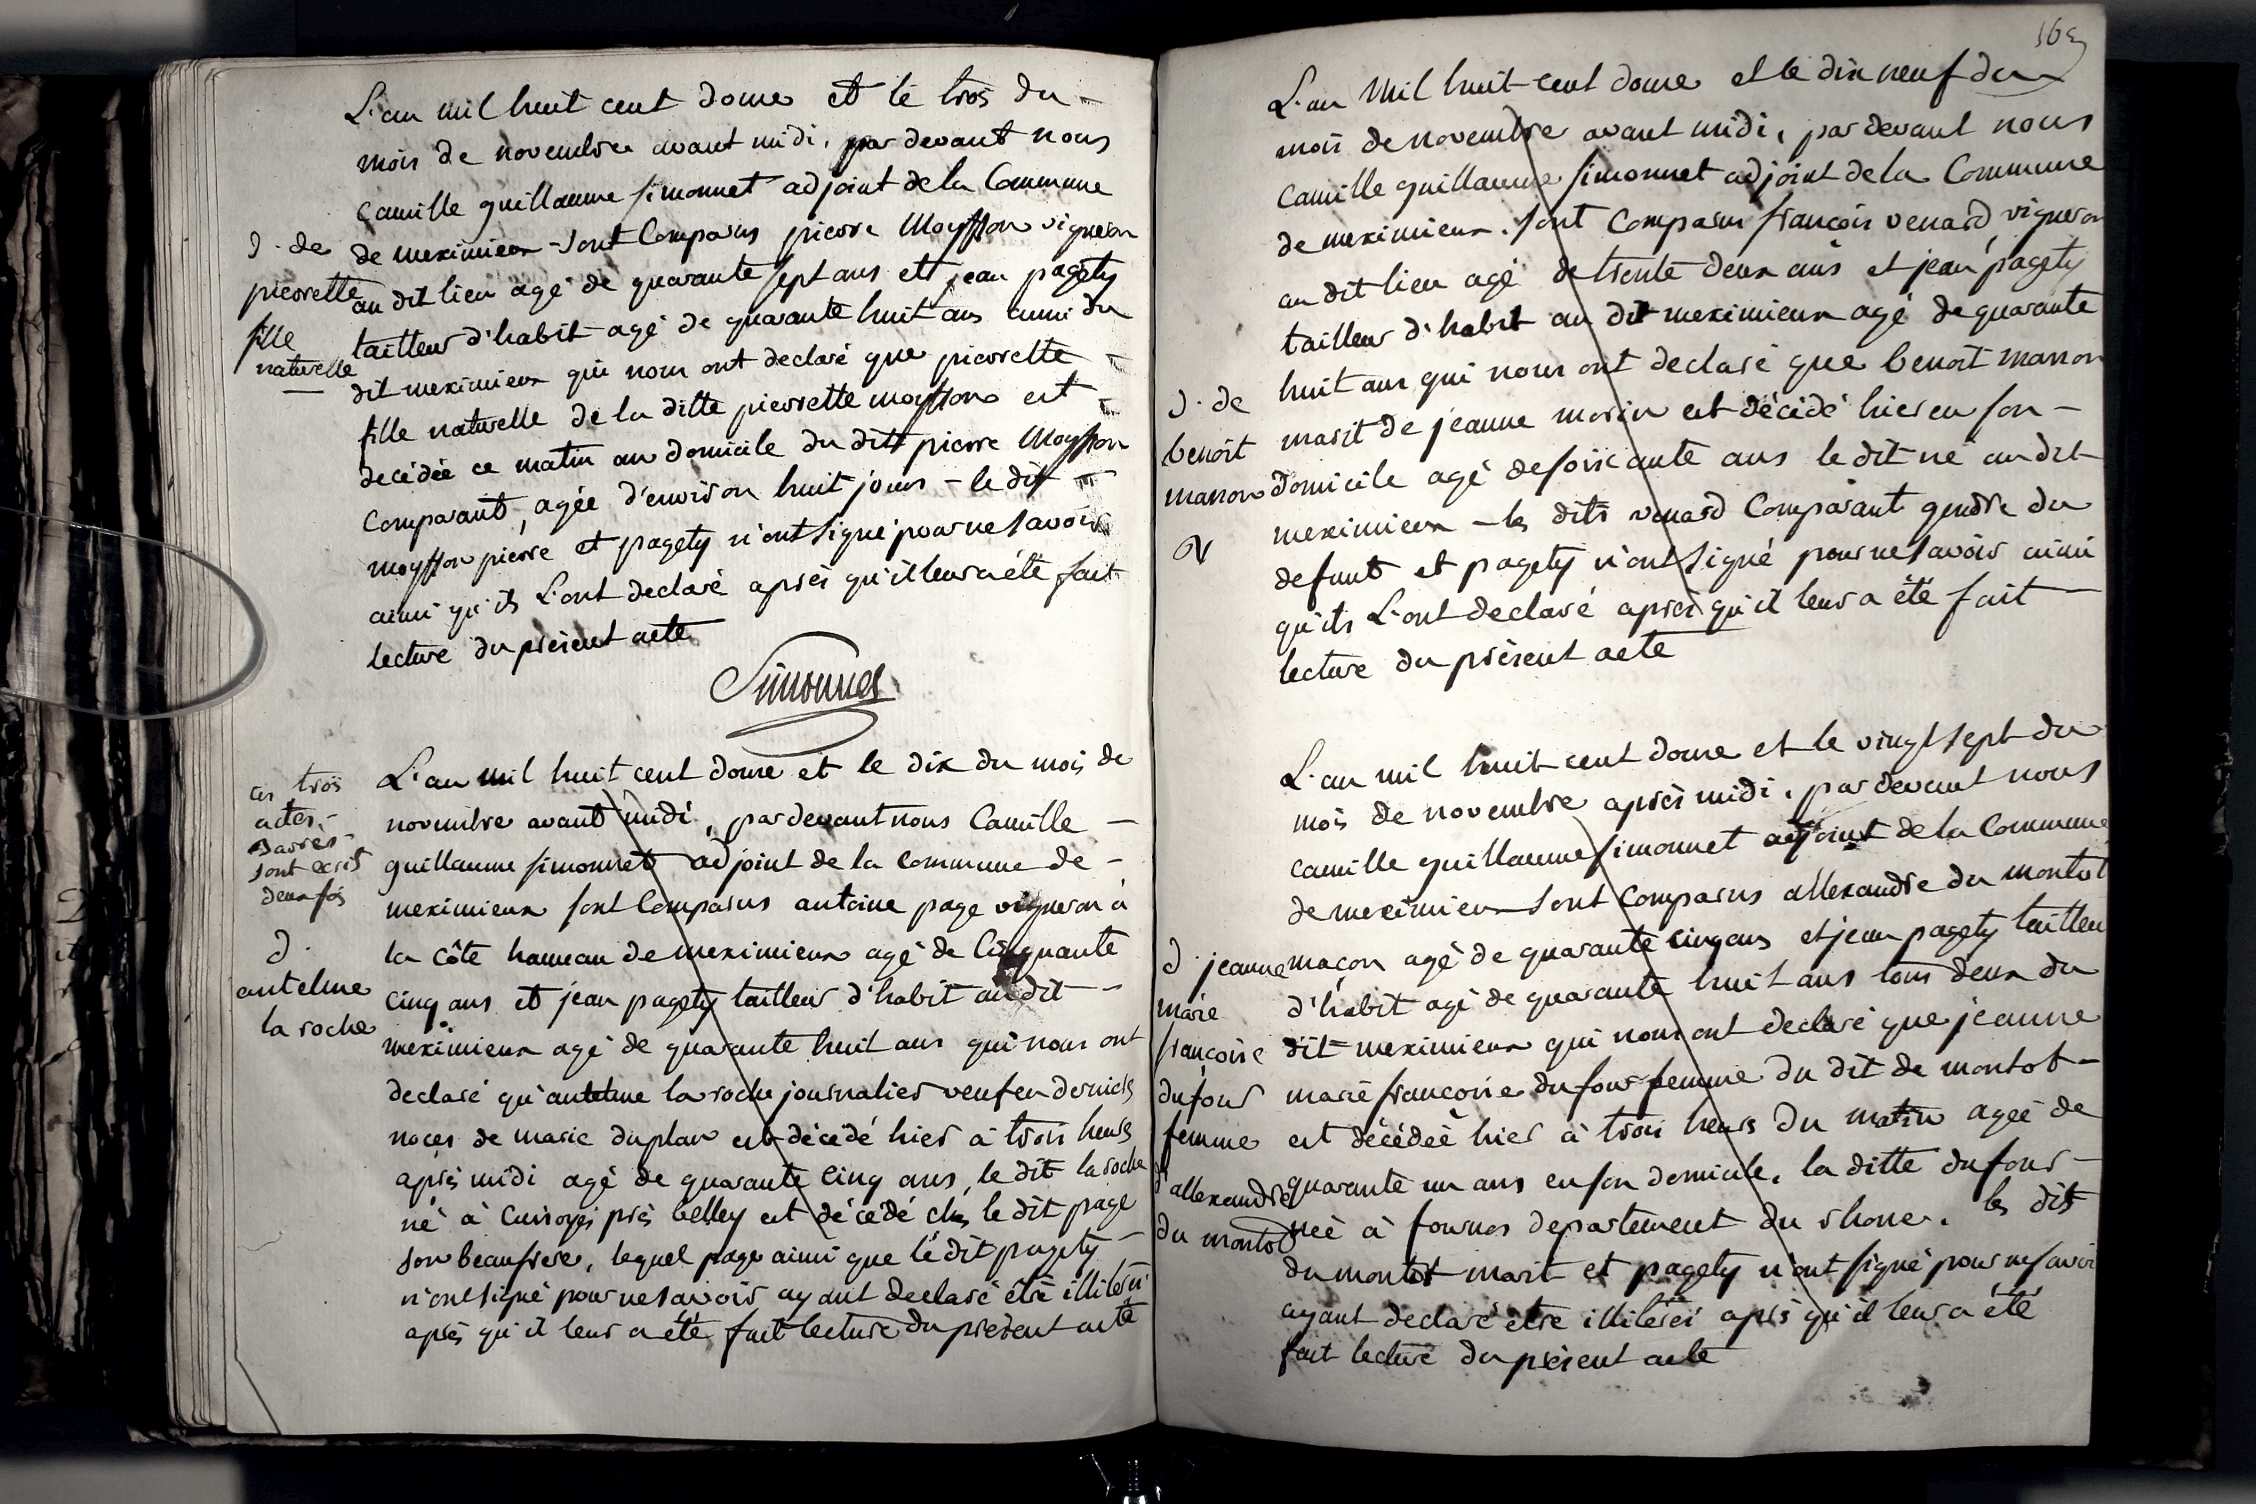 L'an mil huit cent douze et le trois du
mois de novembre avant midi, par devant nous
Camille guillaume simonnet adjoint de la Commune
de meximieux sont Comparus pierre Moysson vigneron
au dit lieu agé de quarante sept ans et jean pagety
tailleur d'habit agé de quarante huit ans aussi du
dit meximieux qui nous ont declaré que pierrette
fille naturelle de la ditte pierrette moysson est
decédée ce matin au domicile du dit pierre Moysson
Comparant, agée d'environ huit jours - le dit
moysson pierre et pagety n'ont signé pour ne savoir
ainsi qu'ils L'ont declaré après qu'il leur a été fait
lecture du présent acte
Simonnet
d. de
pierrette
fille
naturelle
ces trois
actes
Barrés
sont ecrit
deux fois
d.
antelme
la roche
L'an mil huit cent douze et le dix du mois de
novembre avant midi, par devant nous Camille
guillaume simonnet adjoint de la commune de
meximieux sont Comparus antoine page vigneron à
la côte hameau de meximieux agé de Cinquante
cinq ans et jean pagety tailleur d'habit au dit
meximieux agé de quarante huit ans qui nous ont
declaré qu'antelme la roche journalier veuf en dernieres
noces de marie duplan est décédé hier à trois heures
après midi agé de quarante cinq ans, le dit la roche
né à près belley est décédé chés le dit page
son beaufrere, lequel page ainsi que le dit pagety
n'ont signé pour ne savoir ayant declaré être
après qu'il leur a été fait lecture du présent acte
L'an Mil huit cent douze et le dix neuf du
mois de novembre avant midi, par devant nous
Camille guillaume simonnet adjoint de la Commune
de meximieux. sont Comparus françois venard vigneron
au dit lieu agé de trente deux ans et jean pagety
tailleur d'habit au dit meximieux agé de quarante
huit ans qui nous ont declaré que benoit manon
marit de jeanne morin est décédé hier en son
domicile agé de soixante ans le dit né au dit
meximieux - les dits venard Comparant gendre du
defunt et pagety n'ont signé pour ne savoir ainsi
qu'ils L'ont declaré après qu'il leur a été fait
lecture du présent acte
d. de
benoit
manon
L'an mil huit cent douze et le vingt sept du
mois de novembre après midi, par devant nous
camille guillaume simonnet adjoint de la Commune
de meximieux sont Comparus allexandre du montot
maçon agé de quarante cinq ans et jean pagety tailleur
d'habit agé de quarante huit ans tous deux du
dit meximieux qui nous ont declaré que jeanne
marie françoise dufour femme du dit de montot
est décédée hier à trois heures du matin agée de
quarante un ans en son domicile, la ditte dufour
née à departement du rhone. les dits
du montot marit et pagety n'ont signé pour ne savoir
ayant declaré etre après qu'il leur a été
fait lecture du présent acte
d. jeanne
marie
françoise
dufour
femme
d'allexandre
du montot